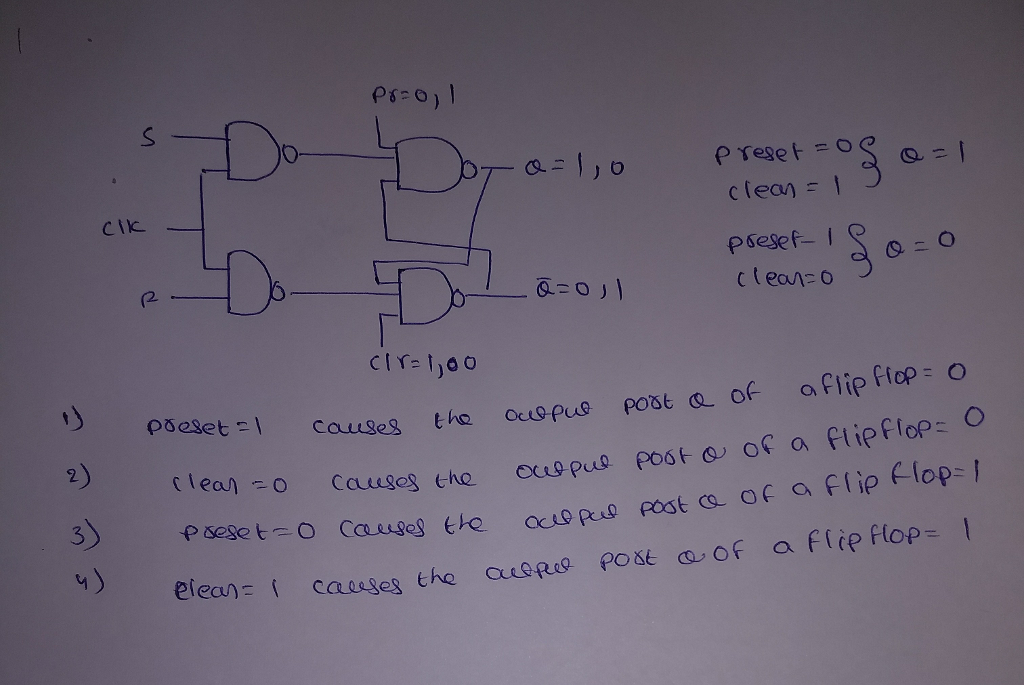 Pr=0,1
S
Q=1,0
preset=0 } Q=1
clear=1
clk
preset-1 } Q=0
clear=0
R
Q̅=0,1
clr=1,00
1) preset=1 causes the output port Q of a flip flop=0
2) clear=0 causes the output port Q of a flipflop=0
3) preset=0 causes the output port Q of a flip flop=1
4) clear=1 causes the output port Q of a flipflop=1